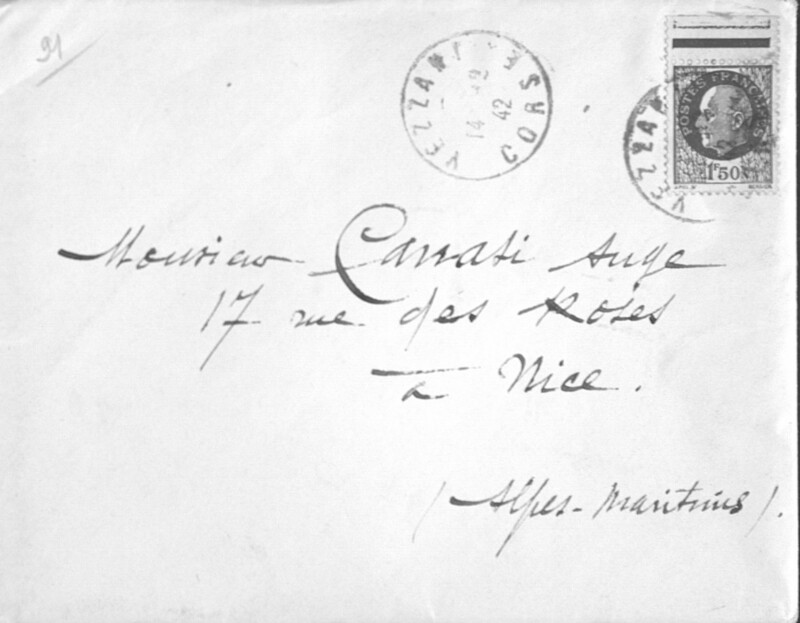 91
VEZZANI CORSE
14 -12
42
VEZZA
POSTES FRANÇAISES
1F50
Monsieur Carrati Ange
17 rue des Roses
à Nice.
(Alpes-Maritimes).